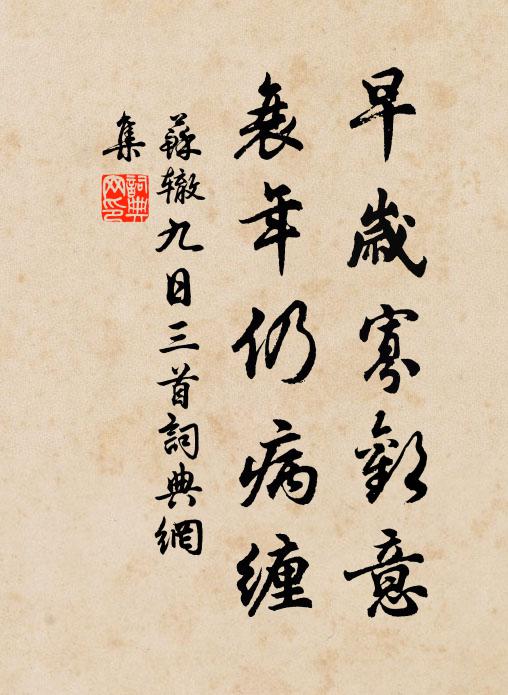 早歲寡歡意
衰年仍病纏
蘇辙九日三首詞典網
集
詞典網印